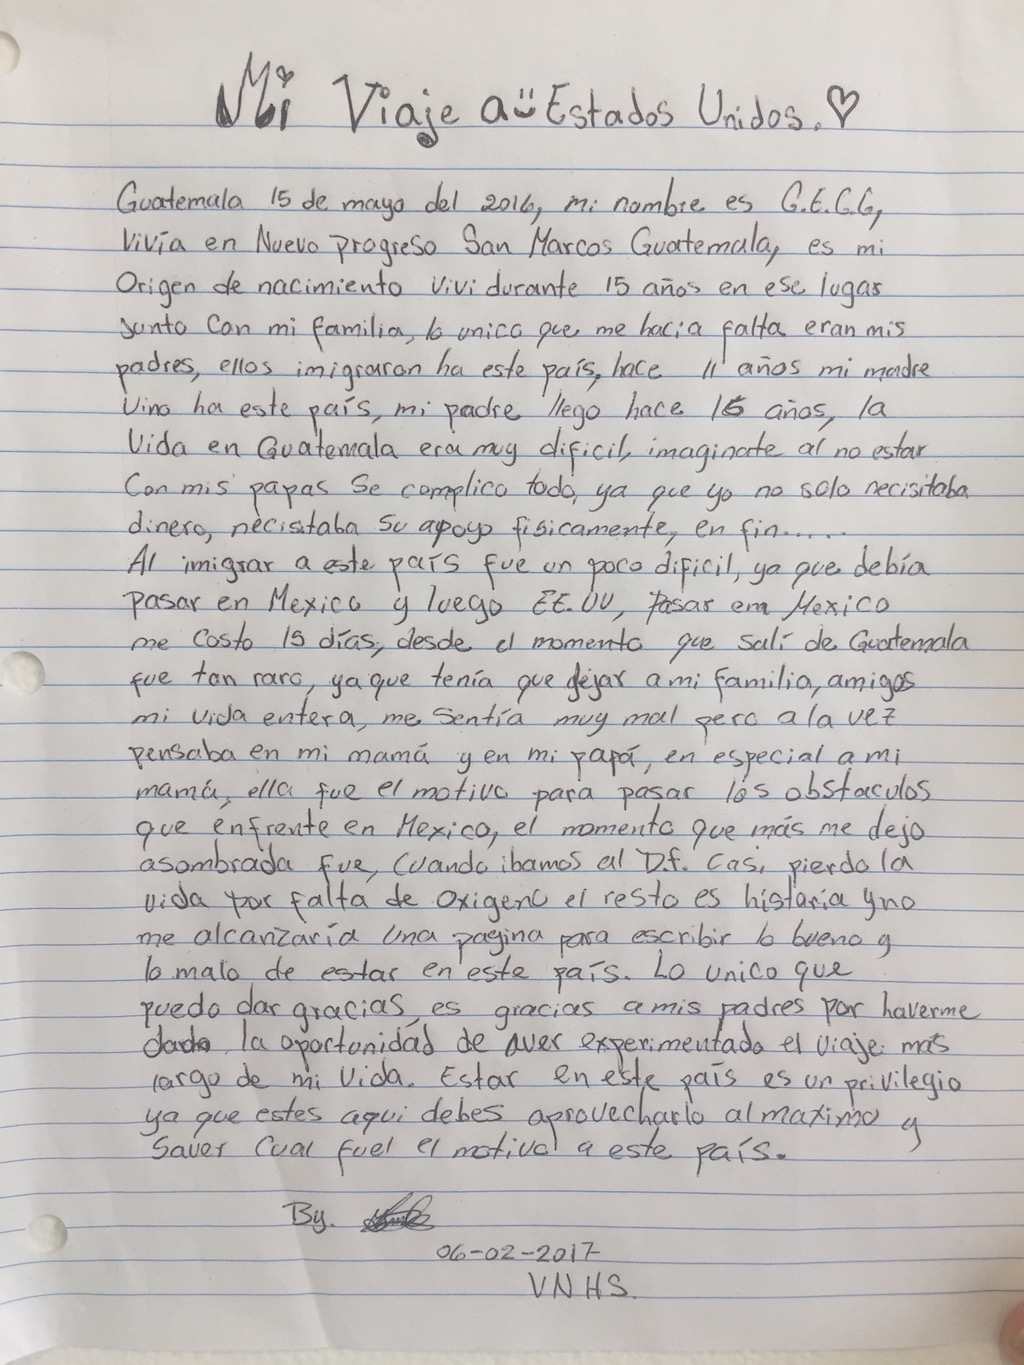 Mi Viaje a Estados Unidos.
Guatemala 15 de mayo del 2016, mi nombre es G.E.G.G,
Vivía en Nuevo progreso San Marcos Guatemala, es mi
Origen de nacimiento Vivi durante 15 años en ese lugar
Junto Con mi familia, lo unico que me hacia falta eran mis
padres, ellos imigraron ha este país, hace 11 años mi madre
Vino ha este país, mi padre llego hace 15 años, la
Vida en Guatemala era muy dificil, imaginate al no estar
Con mis papas Se complico todo, ya que yo no solo necisitaba
dinero, necisitaba Su apoyo fisicamente, en fin.....
Al imigrar a este país fue un poco dificil, ya que debía
pasar en Mexico y luego EE.UU, Pasar em Mexico
me Costo 15 días, desde el momento que Salí de Guatemala
fue tan raro, ya que tenía que dejar a mi familia, amigos
mi vida entera, me Sentía muy mal pero a la vez
pensaba en mi mamá y en mi papá, en especial a mi
mamá, ella fue el motivo para pasar los obstaculos
que enfrente en Mexico, el momento que más me dejo
asombrada fue, Cuando ibamos al D.f. Casi pierdo la
vida por falta de Oxigeno el resto es historia y no
me alcanzaría Una pagina para escribir lo bueno y
lo malo de estar en este país. Lo unico que
puedo dar gracias, es gracias a mis padres por haverme
dado la oportunidad de aver experimentado el viaje mas
largo de mi Vida. Estar en este país es un privilegio
ya que estes aqui debes aprovecharlo al maximo y
Saver Cual fuel el motivo a este país.
By.
06-02-2017
VNHS.